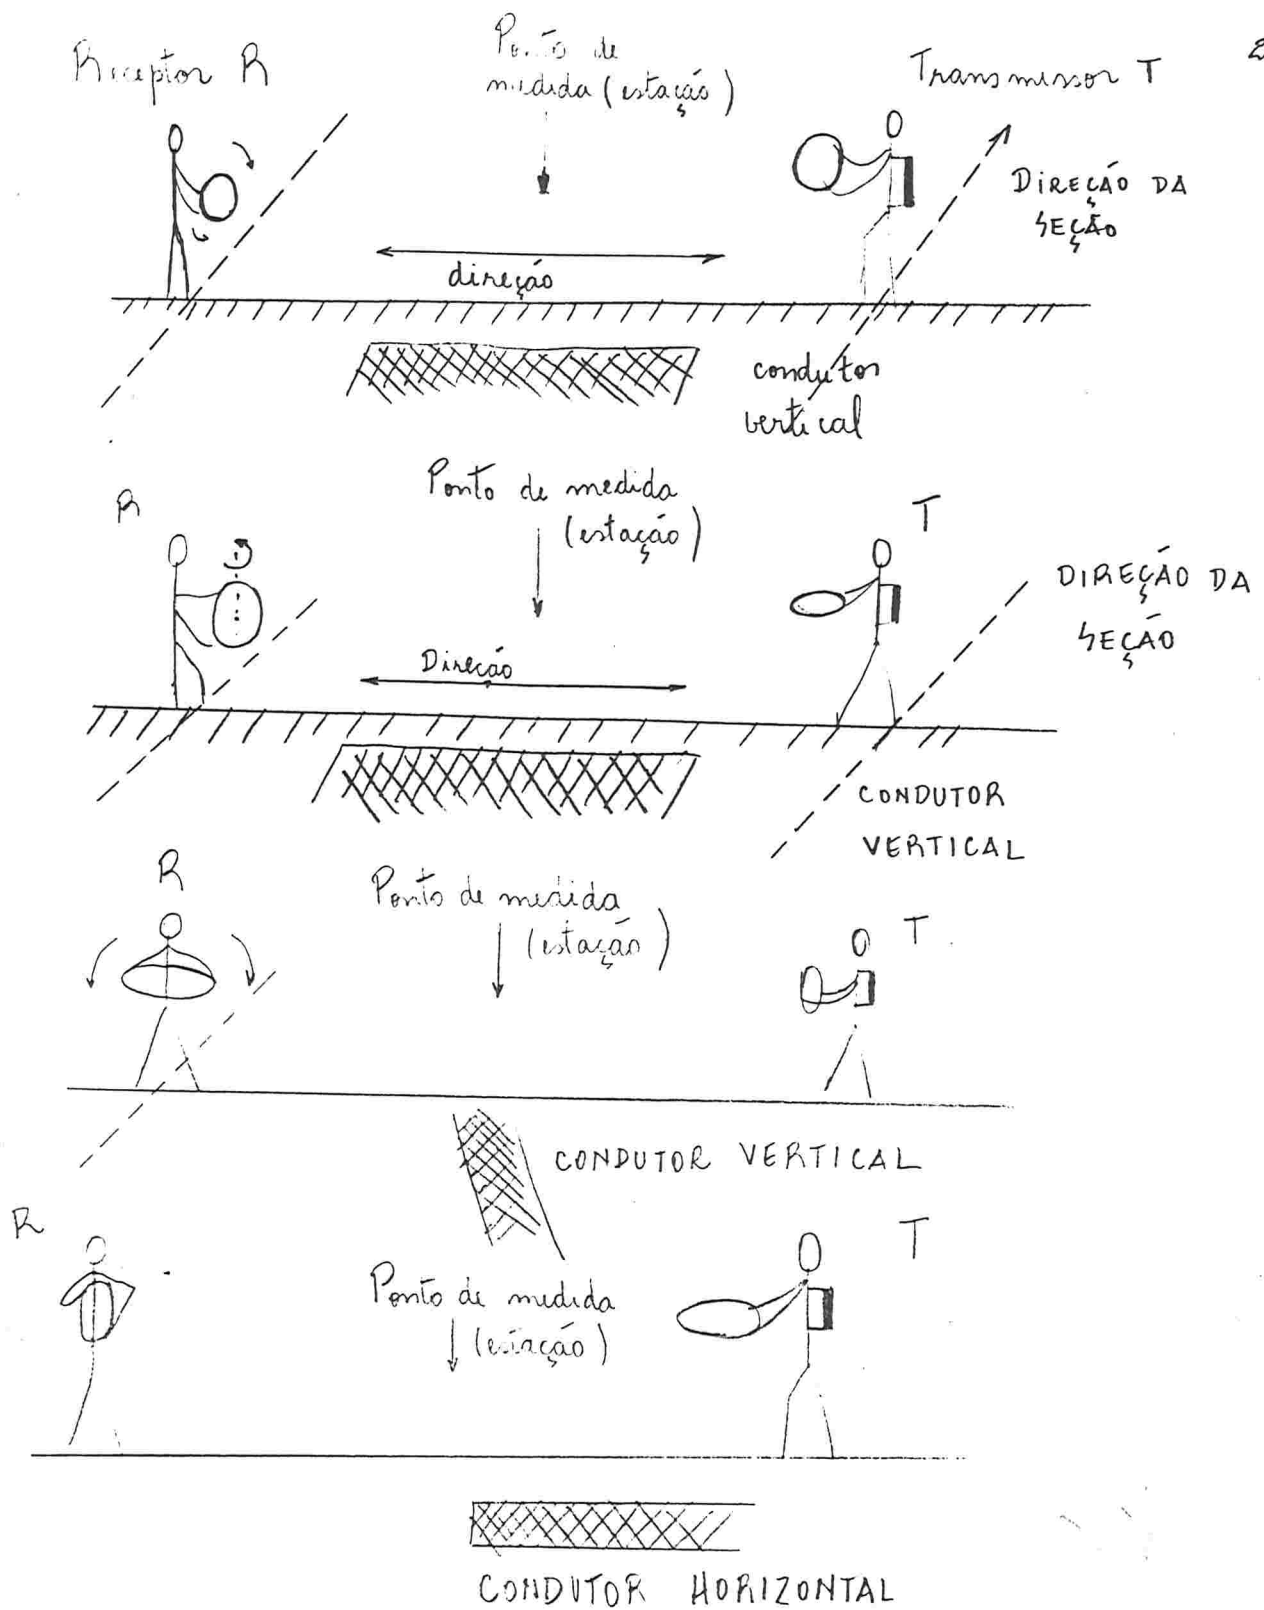 2
Receptor R
Ponto de
medida (estação)
Transmissor T
DIREÇÃO DA
SEÇÃO
direção
condutor
vertical
R
Ponto de medida
(estação)
T
DIREÇÃO DA
SEÇÃO
Direção
CONDUTOR
VERTICAL
R
Ponto de medida
(estação)
T
CONDUTOR VERTICAL
R
Ponto de medida
(estação)
T
CONDUTOR HORIZONTAL